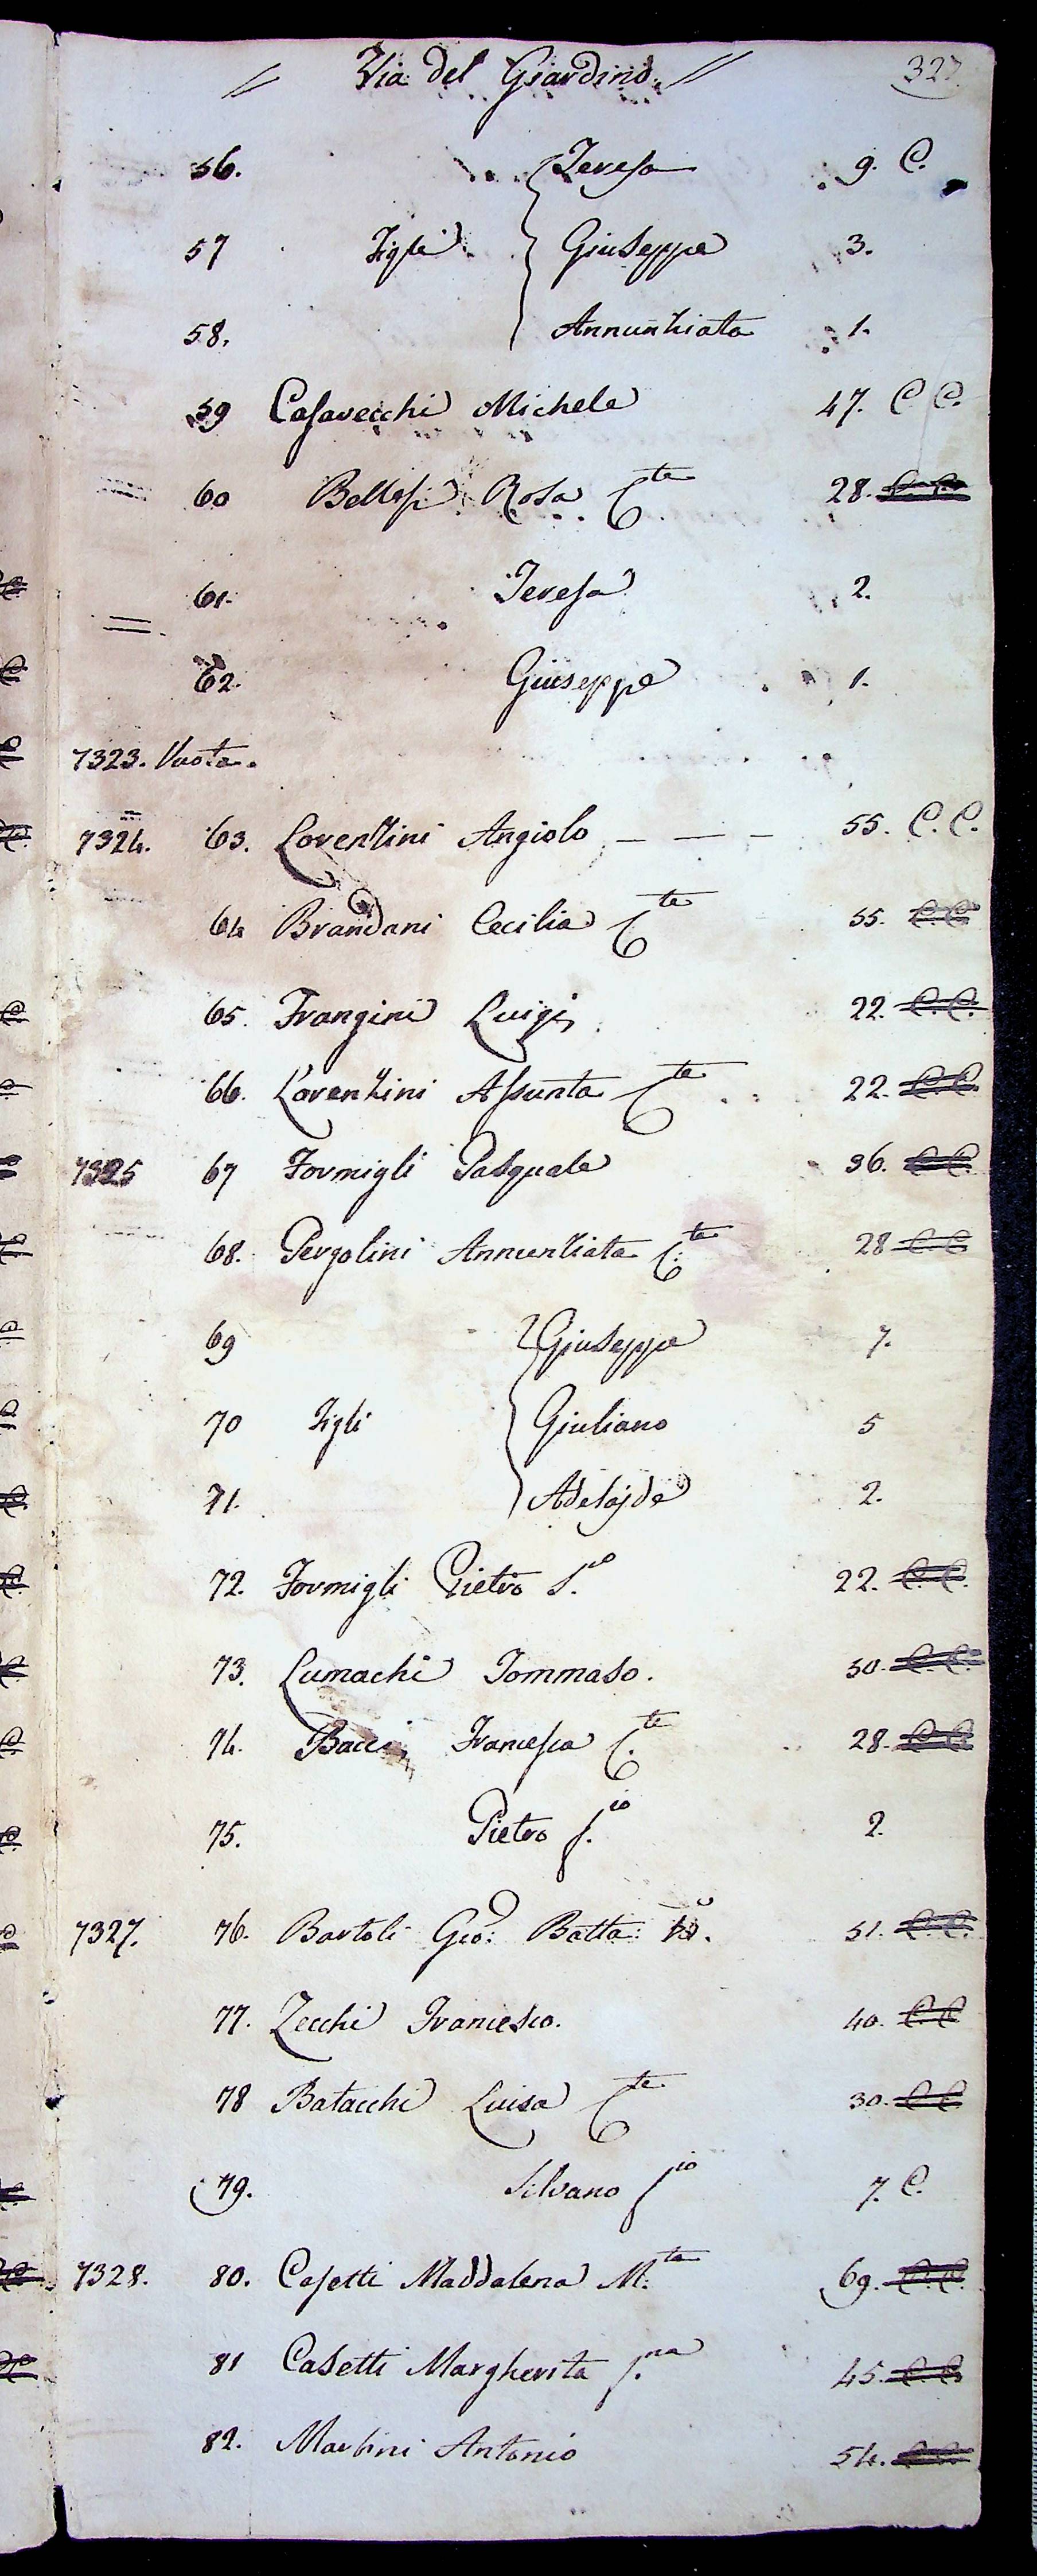 // Via del Giardino. // 327
56. Teresa 9. C.
57 Figli Giuseppe 3.
58. Annunziata 1.
59 Casavecchi Michele 47. C. C.
60 Bellesi Rosa C.te 28. C. C.
61. Teresa 2.
62. Giuseppe 1.
7323. Vuota.
7324. 63. Lorenzini Angiolo — — — 55. C. C.
64 Brandani Cecilia C.te 55. C. C.
65. Frangini Luigi 22. C. C.
66. Lorenzini Assunta C.te 22. C. C.
7325 67 Formigli Pasquale 36. C. C.
68. Pergolini Annunziata C.te 28 C. C.
69 Giuseppe 7.
70 Figli Giuliano 5
71. Adelajde 2.
72. Formigli Pietro S.lo 22. C. C.
73. Lumachi Tommaso. 30. C. C.
74. Bacci Francesca C.te 28. C. C.
75. Pietro f.io 2.
7327. 76. Bartoli Gio: Batta: 51. C. C.
77. Zecchi Francesco. 40. C. C.
78 Batacchi Luisa C.te 30. C. C.
79. Silvano f.io 7. C.
7328. 80. Casetti Maddalena M.ta 69. C. C.
81 Casetti Margherita f.na 45. C. C.
82. Martini Antonio 54. C. C.